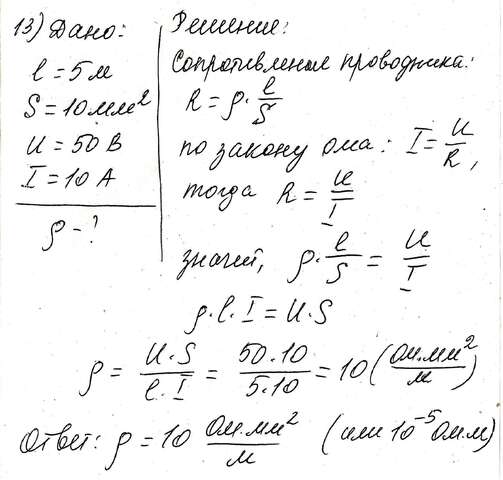 13) Дано:
l = 5 м
S = 10 мм²
U = 50 В
I = 10 А
ρ - ?
Решение:
Сопротивление проводника:
R = ρ · l/S
по закону ома: I = U/R,
тогда R = U/I
значит, ρ · l/S = U/I
ρ · l · I = U · S
ρ = U · S / l · I = 50 · 10 / 5 · 10 = 10 (Ом · мм² / м)
Ответ: ρ = 10 Ом · мм² / м (или 10⁻⁵ Ом · м)